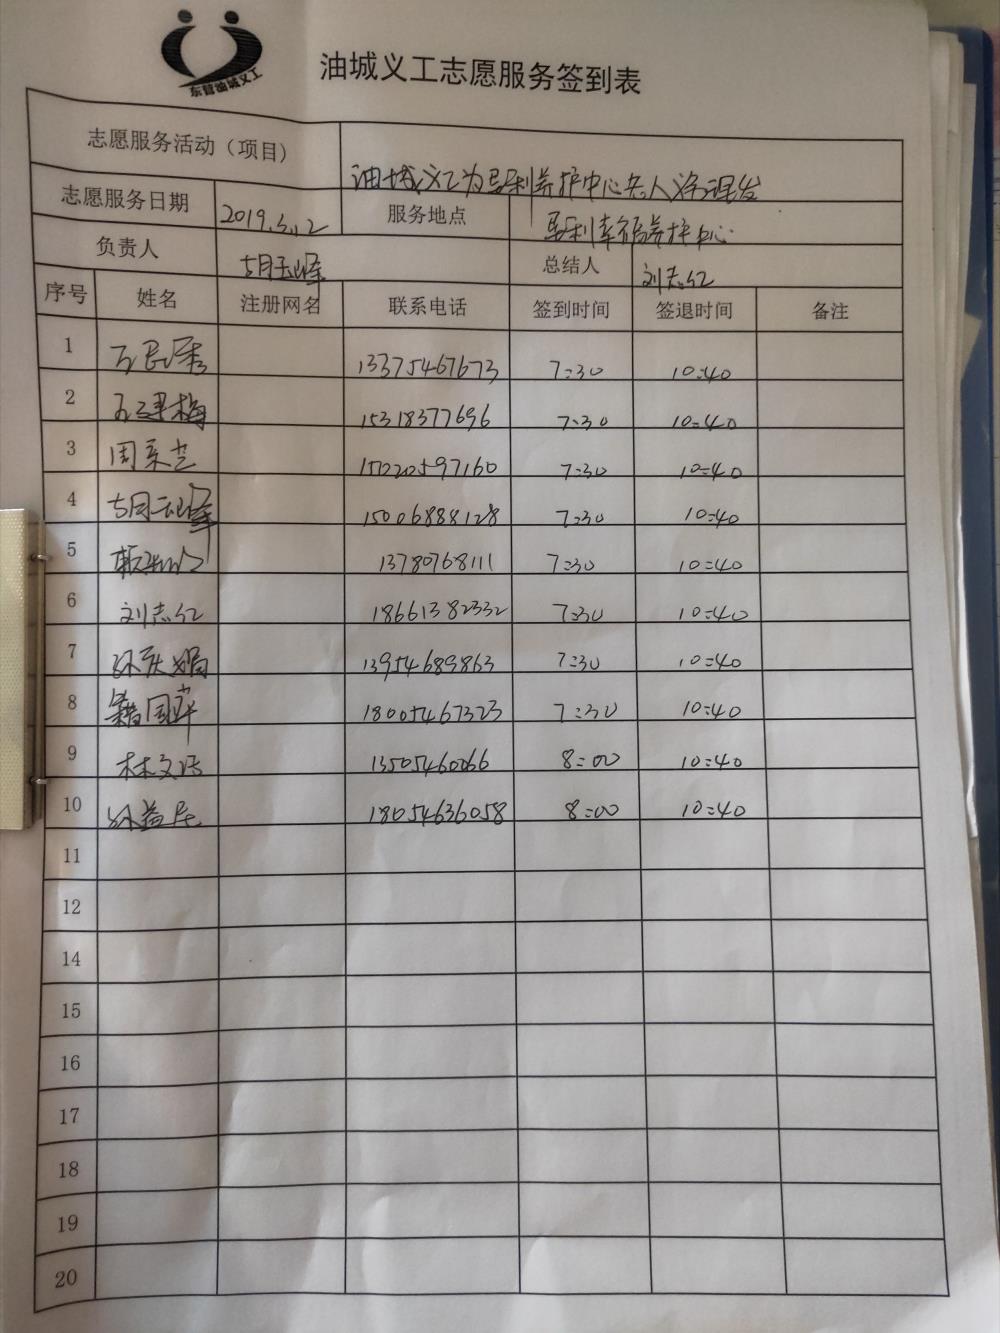 东营油城义工
油城义工志愿服务签到表
志愿服务活动（项目） 油城义工为垦利养护中心老人洗理发
志愿服务日期 2019.5.12 服务地点 垦利幸福养护中心
负责人 胡玉峰 总结人 刘志红
序号 姓名 注册网名 联系电话 签到时间 签退时间 备注
1 13375467673 7:30 10:40
2 15318377696 7:30 10:40
3 周 15020597160 7:30 10:40
4 胡玉峰 15006888128 7:30 10:40
5 13780768111 7:30 10:40
6 刘志红 18661382332 7:30 10:40
7 孙庆娟 13954689863 7:30 10:40
8 籍国华 18005467323 7:30 10:40
9 林文 13505460066 8:00 10:40
10 孙益 18054636058 8:00 10:40
11
12
14
15
16
17
18
19
20